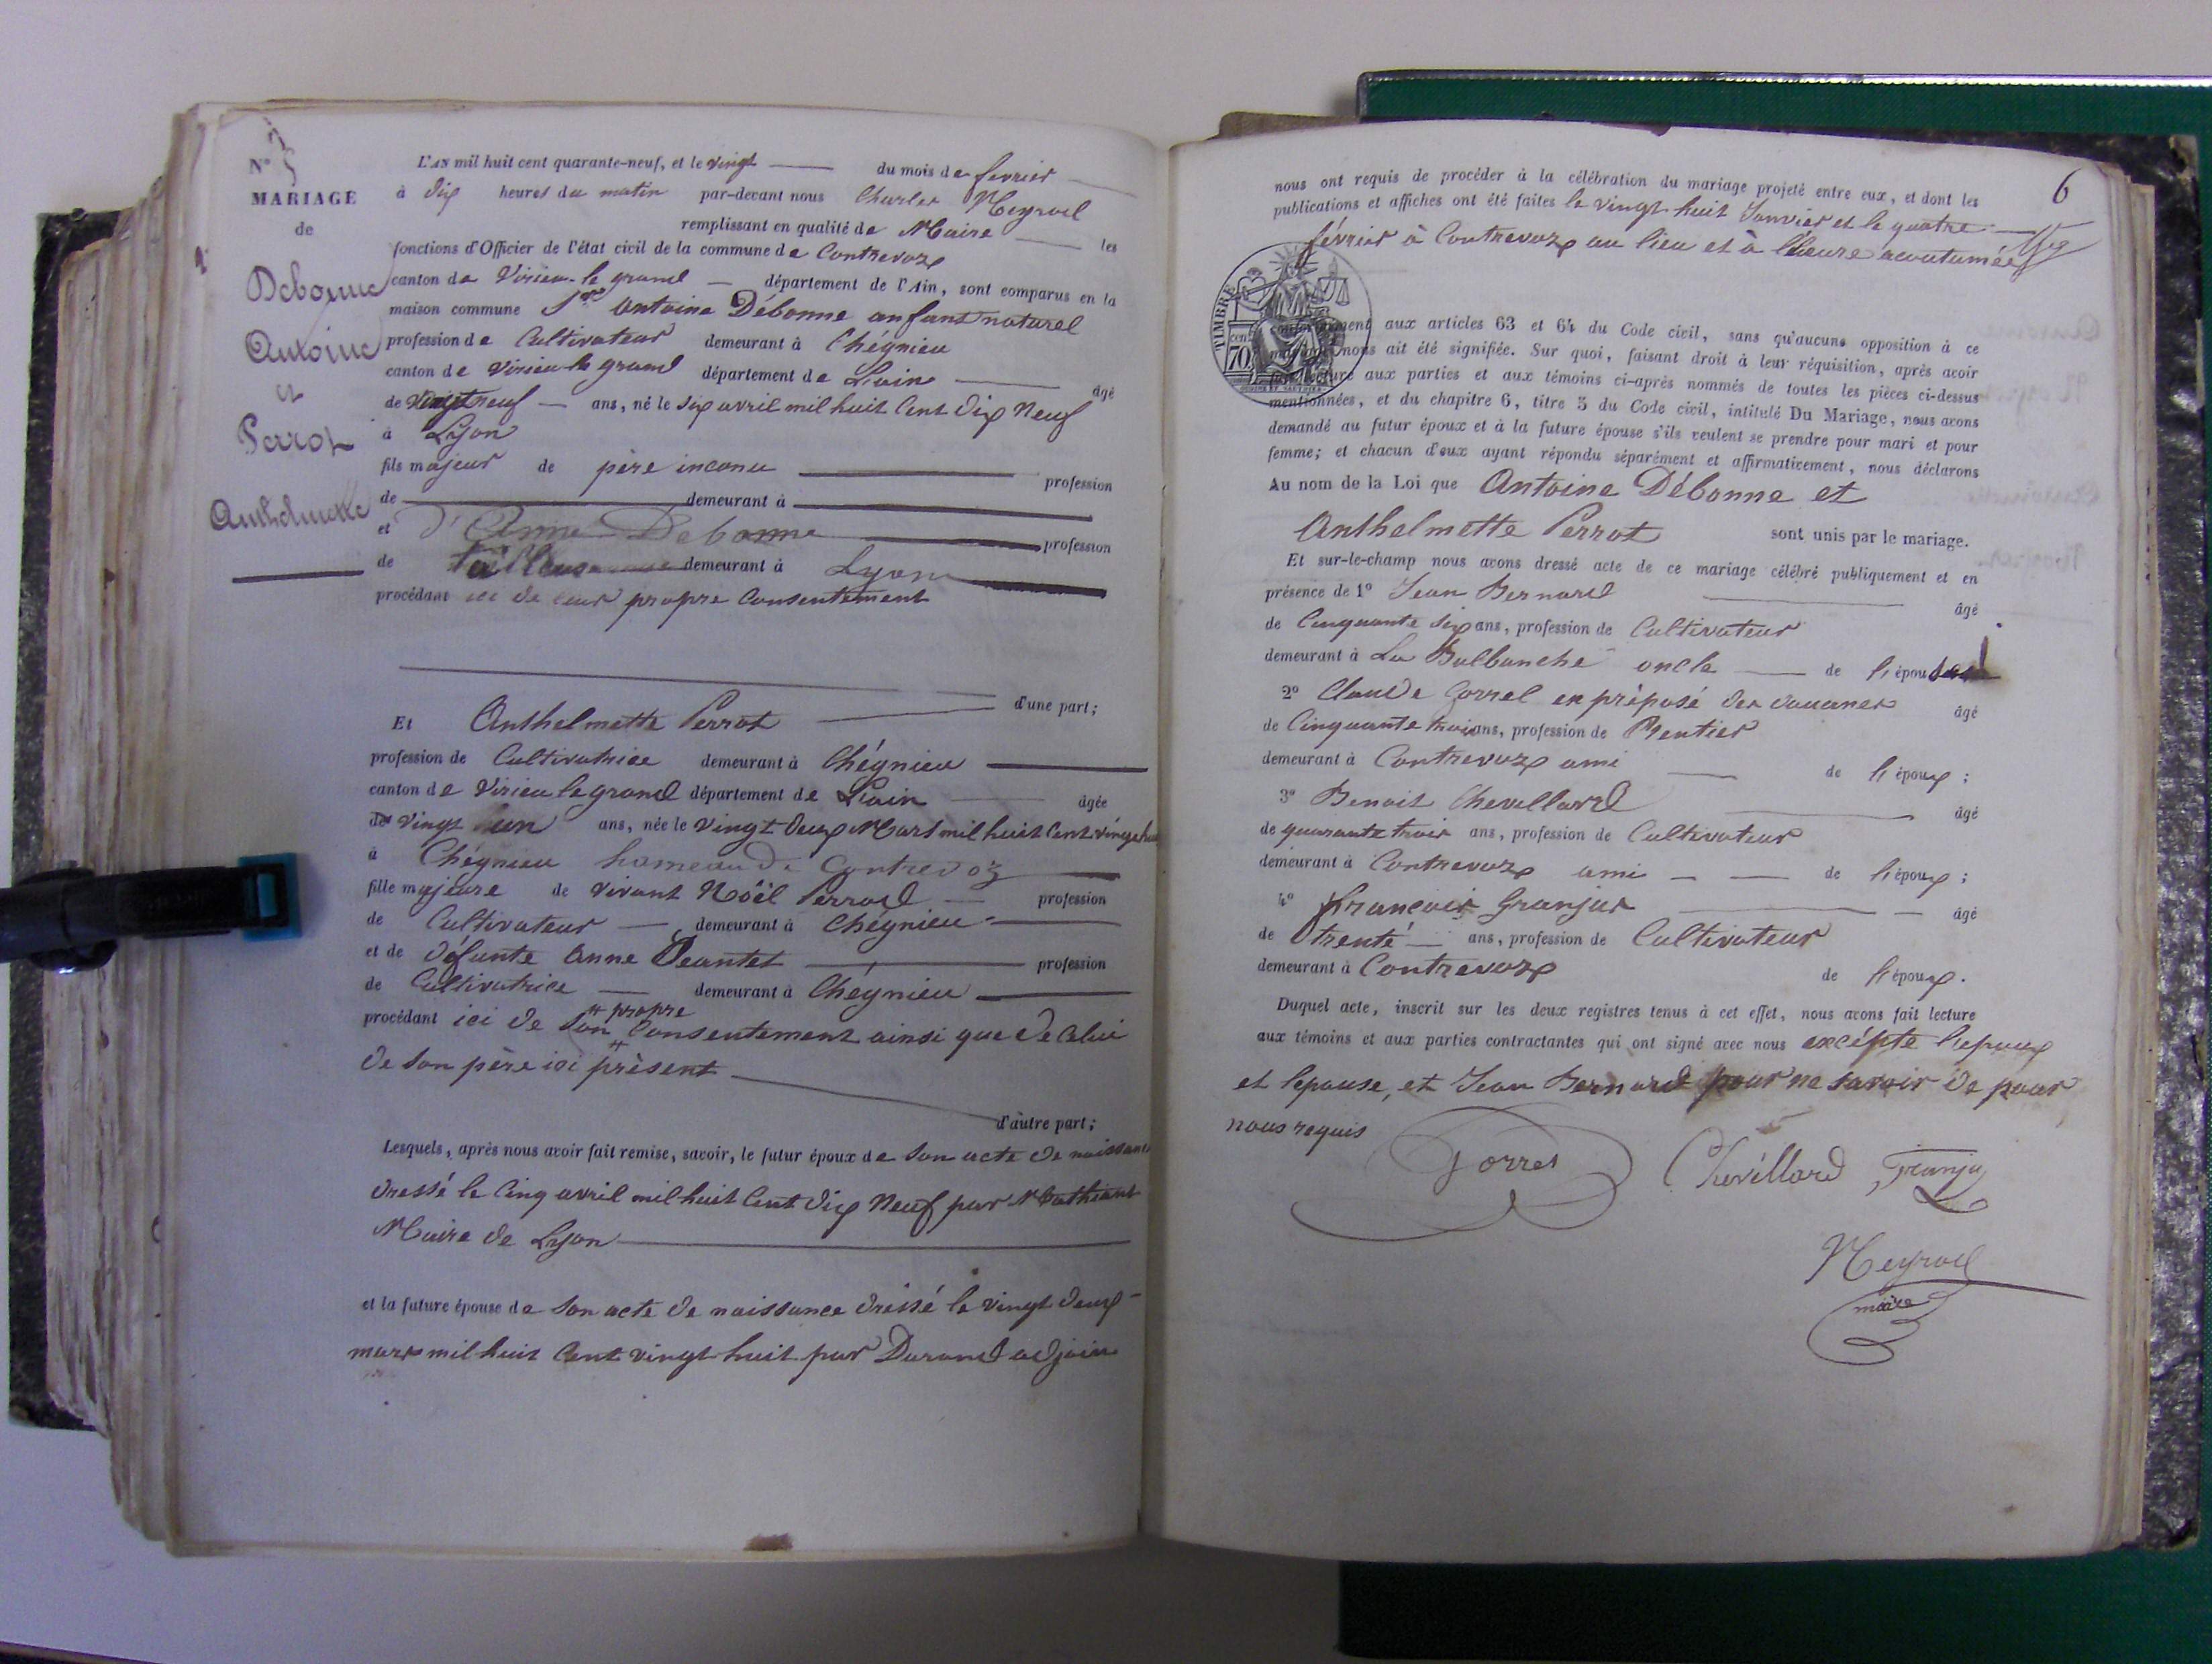 N° 5
MARIAGE
de
Debonne
Antoine
et
Perrot
Anthelmette
L'AN mil huit cent quarante-neuf, et le vingt du mois de fevrier
à dix heures du matin par-devant nous Charles Meyrod
remplissant en qualité de Maire les
fonctions d'Officier de l'état civil de la commune de Contrevoze
canton de Virieu-le grand département de l'Ain, sont comparus en la
maison commune Antoine Débonne enfant naturel
profession de Cultivateur demeurant à Chégnieu
canton de Virieu le grand département de Lain âgé
de Vingt neuf ans, né le six avril mil huit Cent dix Neuf
à Lyon
fils majeur de père inconu profession
de demeurant à
et d'Anne Debonne profession
de tailleuse demeurant à Lyon
procédant ici de leur propre Consentement
d'une part;
Et Anthelmette Perrot
profession de Cultivatrice demeurant à Chégnieu
canton de Virieu le grand département de Lain âgée
de vingt un ans, née le vingt deux Mars mil huit Cent vingt huit
à Chégnieu hameau de Contrevoz
fille majeure de vivant Noël Perrod profession
de Cultivateur demeurant à Chégnieu
et de défunte Anne Jeantet profession
de Cultivatrice demeurant à Chégnieu
procédant ici de son # propre Consentement ainsi que de Celui
de son père ici présent
d'autre part;
Lesquels, après nous avoir fait remise, savoir, le futur époux de Son acte de naissance
dressé le Cinq avril mil huit Cent dix Neuf par
Maire de Lyon
et la future épouse de Son acte de naissance dressé le vingt deux
mars mil huit Cent vingt-huit par Durand adjoin
6
nous ont requis de procéder à la célébration du mariage projeté entre eux, et dont les
publications et affiches ont été faites le vingt huit Janvier et le quatre
février à Contrevoze au lieu et à l'heure acoutumées
TIMBRE
70
conformément aux articles 63 et 64 du Code civil, sans qu'aucune opposition à ce
mariage nous ait été signifiée. Sur quoi, faisant droit à leur réquisition, après avoir
fait lecture aux parties et aux témoins ci-après nommés de toutes les pièces ci-dessus
mentionnées, et du chapitre 6, titre 5 du Code civil, intitulé Du Mariage, nous avons
demandé au futur époux et à la future épouse s'ils veulent se prendre pour mari et pour
femme; et chacun d'eux ayant répondu séparément et affirmativement, nous déclarons
Au nom de la Loi que Antoine Débonne et
Anthelmette Perrot sont unis par le mariage.
Et sur-le-champ nous avons dressé acte de ce mariage célébré publiquement et en
présence de 1° Jean Bernard âgé
de Cinquante six ans, profession de Cultivateur
demeurant à La Balbanche oncle de l'épouse
2° Claude Gorrel en préposé des douanes âgé
de Cinquante trois ans, profession de Rentier
demeurant à Contrevoze ami de l'époux;
3° Benoit Chevillard âgé
de quarante trois ans, profession de Cultivateur
demeurant à Contrevoze ami de l'époux;
4° francois Granjas âgé
de trente ans, profession de Cultivateur
demeurant à Contrevoze de l'époux.
Duquel acte, inscrit sur les deux registres tenus à cet effet, nous avons fait lecture
aux témoins et aux parties contractantes qui ont signé avec nous excépte lepoux
et lepouse, et Jean Bernard pour ne savoir de pour
nous requis
Gorrel Chevillard Granja
Meyrod
maire